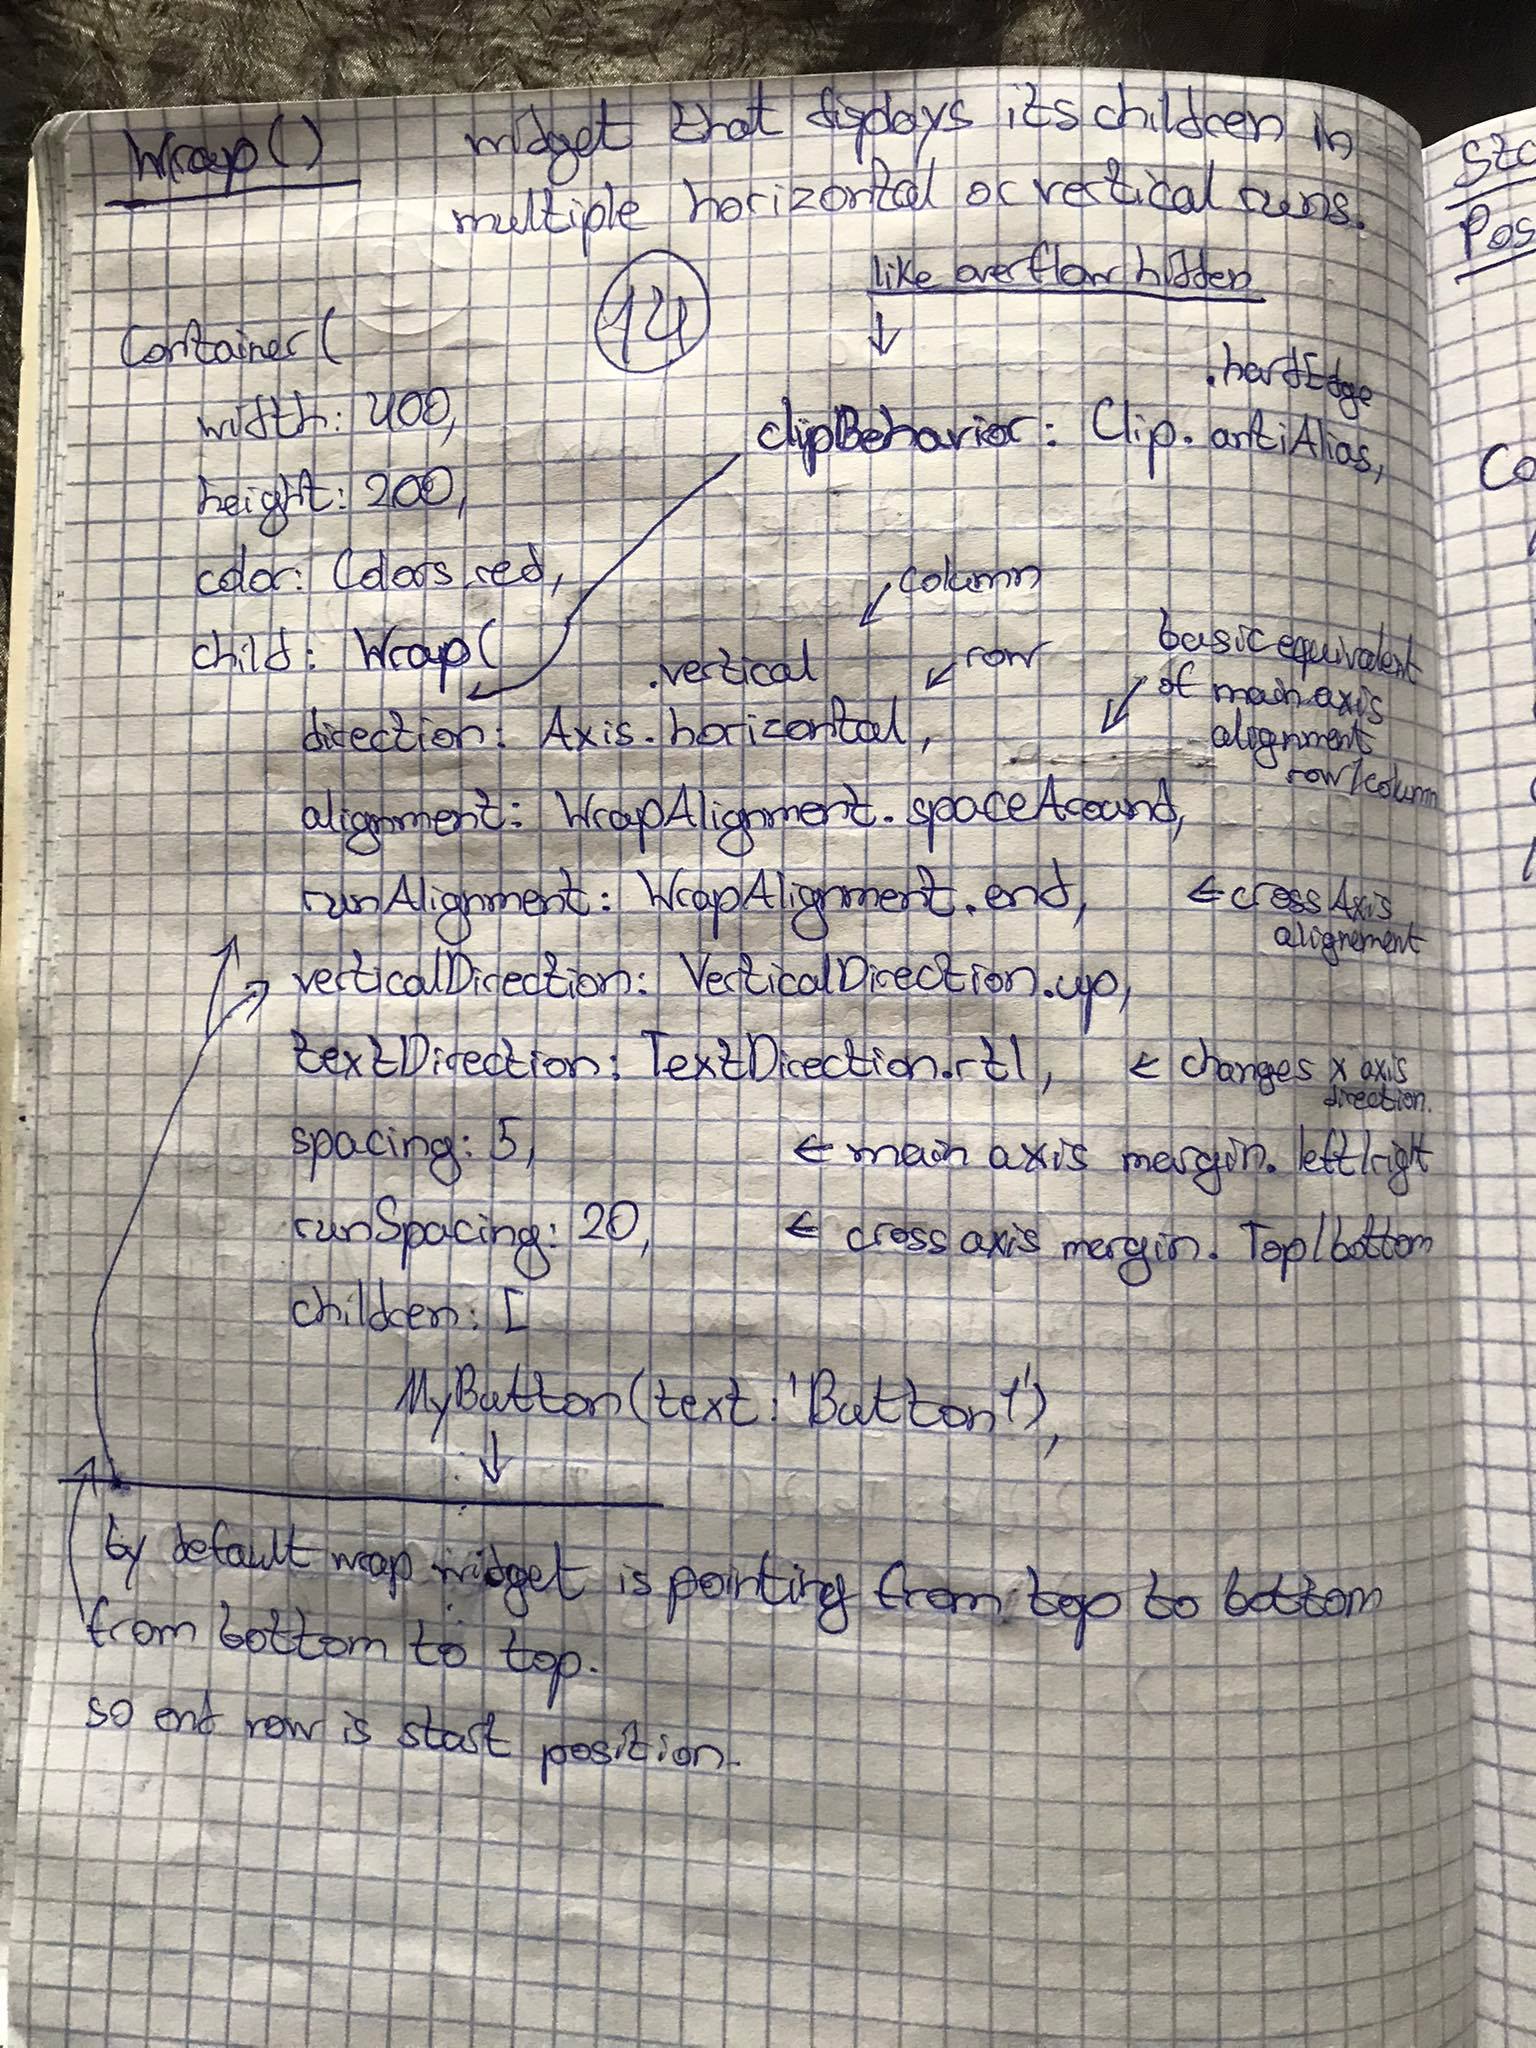 Wrap() widget that displays its children in
multiple horizontal or vertical runs.
like overflow hidden
14
Container(
width: 400,
height: 200,
.hardEdge
clipBehavior: Clip.antiAlias,
color: Colors.red,
child: Wrap(
column
.vertical
row
direction: Axis.horizontal,
basic equivalent
of main axis
alignment
row/column
alignment: WrapAlignment.spaceAround,
runAlignment: WrapAlignment.end, ← crossAxis
alignement
verticalDirection: VerticalDirection.up,
textDirection: TextDirection.rtl, ← changes x axis
direction.
spacing: 5, ← main axis margin. left/right
runSpacing: 20, ← cross axis margin. Top/bottom
children: [
MyButton(text: 'Button 1'),
by default wrap widget is pointing from top to bottom
from bottom to top.
so end row is start position.
Sta
Pos
Co